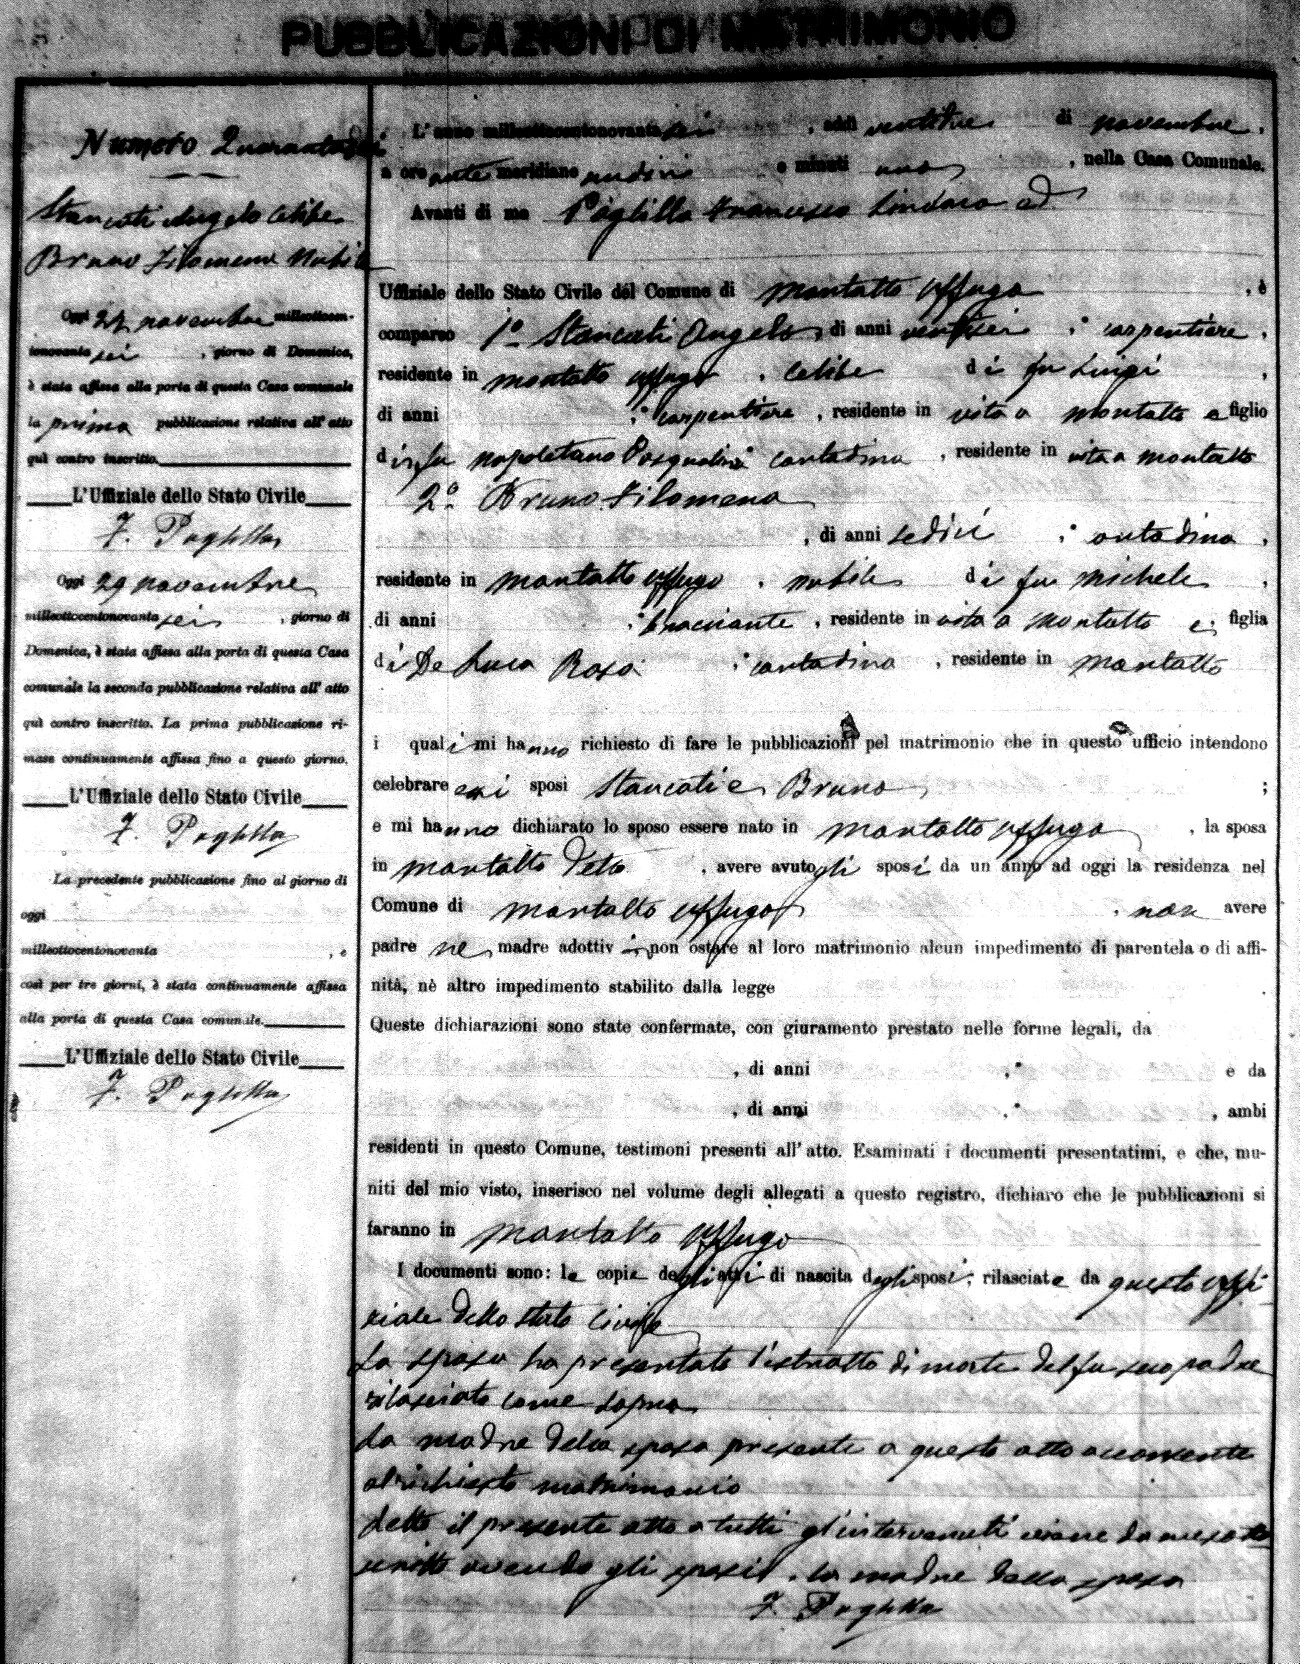 PUBBLICAZIONI DI MATRIMONIO
Numero Quarantasei
Stancati Angelo Celibe
Bruno Filomena Nubile
Oggi 22 novembre milleottocen-
tonovantasei , giorno di Domenica,
è stata affissa alla porta di questa Casa comunale
la prima pubblicazione relativa all' atto
quì contro inscritto.
L'Uffiziale dello Stato Civile
F. Paglilla
Oggi 29 novembre
milleottocentonovantasei , giorno di
Domenica, è stata affissa alla porta di questa Casa
comunale la seconda pubblicazione relativa all' atto
quì contro inscritto. La prima pubblicazione ri-
mase continuamente affissa fino a questo giorno.
L'Uffiziale dello Stato Civile
F. Paglilla
La precedente pubblicazione fino al giorno di
oggi
milleottocentonovanta , e
così per tre giorni, è stata continuamente affissa
alla porta di questa Casa comunale.
L'Uffiziale dello Stato Civile
F. Paglilla
L'anno milleottocentonovantasei , addì di novembre ,
a ore ante meridiane undici e minuti uno , nella Casa Comunale.
Avanti di me Paglilla Francesco Sindaco ed
Uffiziale dello Stato Civile del Comune di Montalto Uffugo , è
comparso 1º Stancati Angelo , di anni ventisei , carpentiere ,
residente in Montalto Uffugo , celibe di fu Luigi ,
di anni , carpentiere , residente in vita a Montalto e figlio
di fu Napoletano Pasqualina contadina , residente in vita a Montalto
2º Bruno Filomena
, di anni sedici , contadina ,
residente in Montalto Uffugo , nubile di fu Michele ,
di anni , bracciante , residente in vita a Montalto e , figlia
di De Luca Rosa , contadina , residente in Montalto
i quali mi hanno richiesto di fare le pubblicazioni pel matrimonio che in questo ufficio intendono
celebrare essi sposi Stancati e Bruno ;
e mi hanno dichiarato lo sposo essere nato in Montalto Uffugo , la sposa
in Montalto detto , avere avuto gli sposi da un anno ad oggi la residenza nel
Comune di Montalto Uffugo , non avere
padre ne madre adottivi , non ostare al loro matrimonio alcun impedimento di parentela o di affi-
nità, nè altro impedimento stabilito dalla legge
Queste dichiarazioni sono state confermate, con giuramento prestato nelle forme legali, da
, di anni , e da
, di anni , , ambi
residenti in questo Comune, testimoni presenti all' atto. Esaminati i documenti presentatimi, e che, mu-
niti del mio visto, inserisco nel volume degli allegati a questo registro, dichiaro che le pubblicazioni si
faranno in Montalto Uffugo
I documenti sono: le copie degli atti di nascita degli sposi ; rilasciate da questo Uffi
ziale dello Stato Civile
La sposa ha presentato l'estratto di morte del fu suo padre
rilasciato come sopra
La madre della sposa presente a questo atto acconsente
al richiesto matrimonio
Letto il presente atto a tutti gl'intervenuti viene da me sotto
scritto avendo gli sposi e la madre della sposa
F. Paglilla